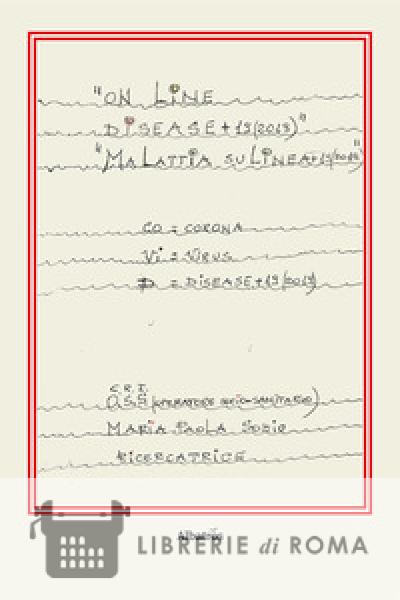 "ON LINE
DISEASE+19(2019)"
"MALATTIA SULINEA+19(2019)"
CO = CORONA
Vi = VIRUS
D = DISEASE+19(2019)
E.R.I.
O.S.S (OPERATORE SOCIO-SANITARIO)
MARIA PAOLA SOZIO
RICERCATRICE
Albatros
LIBRERIE di ROMA